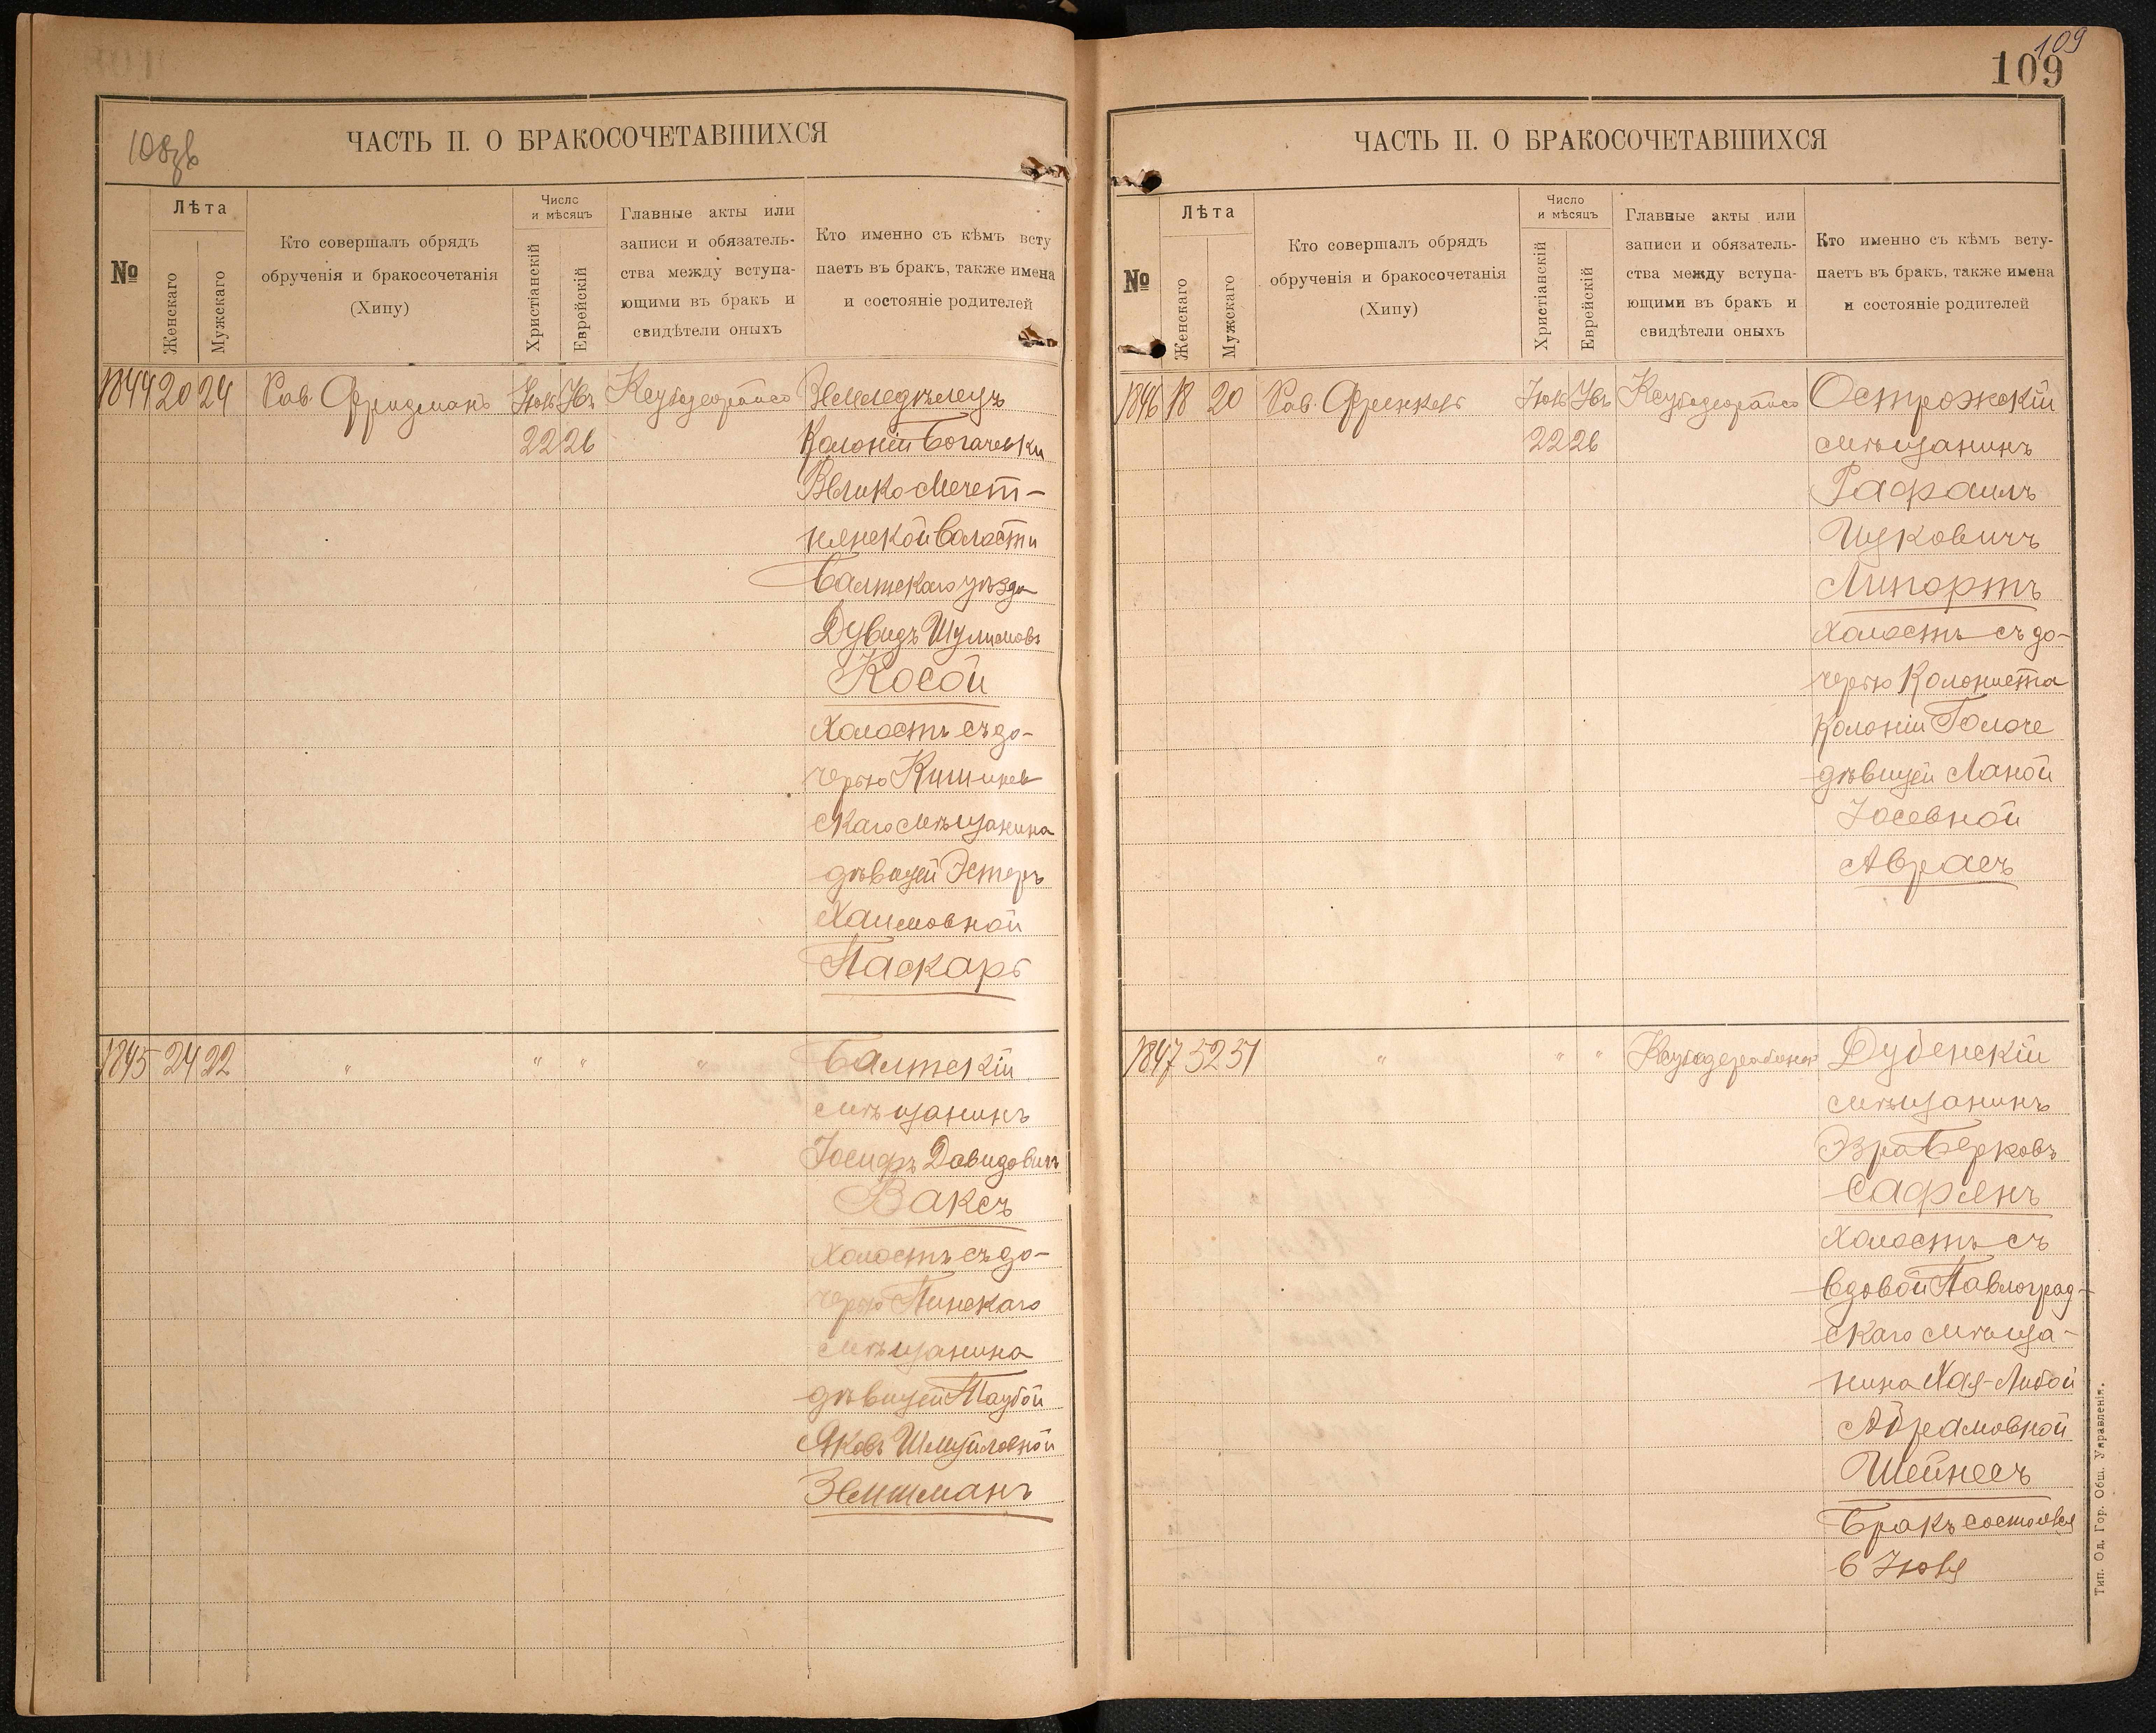 108 зв
ЧАСТЬ II. О БРАКОСОЧЕТАВШИХСЯ
№
Лѣта
Женскаго
Мужскаго
Кто совершалъ обрядъ
обрученія и бракосочетанія
(Хипу)
Число
и мѣсяцъ
Христіанскій
Еврейскій
Главные акты или
записи и обязатель-
ства между вступа-
ющими въ бракъ и
свидѣтели оныхъ
Кто именно съ кѣмъ всту
паетъ въ бракъ, также имена
и состояніе родителей
1844 20 24 Рав. Фридманъ 22 26
Земледѣлецъ
Колоніи Богачевки
Велико Мечет-
нянской волости
Балтскаго уѣзда
Дувидъ Шулимовъ
Косой
холостъ съ до-
черью Кишинев
скаго мѣщанина
дѣвицей Эстеръ
Хаимовной
Паскарь
1845 24 22 " " " "
Балтскій
мѣщанинъ
Іосифъ Давидовичъ
Ваксъ
холостъ съ до-
черью Пинскаго
мѣщанина
дѣвицей Таубой
Яковъ Шмуйловной
Зейтманъ
109
109
ЧАСТЬ II. О БРАКОСОЧЕТАВШИХСЯ
№
Лѣта
Женскаго
Мужскаго
Кто совершалъ обрядъ
обрученія и бракосочетанія
(Хипу)
Число
и мѣсяцъ
Христіанскій
Еврейскій
Главные акты или
записи и обязатель-
ства между вступа-
ющими въ бракъ и
свидѣтели оныхъ
Кто именно съ кѣмъ всту-
паетъ въ бракъ, также имена
и состояніе родителей
1846 18 20 Рав. Френкель 22 26
Острожскій
мѣщанинъ
Рафаилъ
Ицковичъ
Липортъ
холостъ съ до-
черью Колониста
Колоніи
дѣвицей Ханой
Іосевной
Аврасъ
1847 52 51 " " "
Дубенскій
мѣщанинъ
Эзра Берковъ
Сафянъ
холостъ съ
вдовой Павлоград-
скаго мѣща-
нина Хая-Либой
Абрамовной
Шейнесъ
Бракъ состоялся
6 Іюня
Тип. Од. Гор. Общ. Управленія.